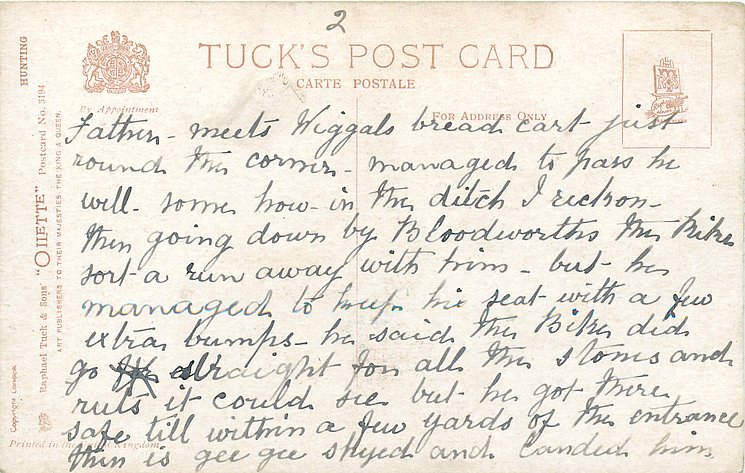 2
TUCK'S POST CARD
CARTE POSTALE
By Appointment
FOR ADDRESS ONLY
HUNTING
Raphael Tuck & Sons' "OILETTE" Postcard No. 3194
ART PUBLISHERS TO THEIR MAJESTIES THE KING & QUEEN.
Copyright London
Printed in the United Kingdom
Father - meets Wiggals bread cart just
round the corner - managed to pass he
will - some how - in the ditch I reckon -
then going down by Bloodworths the Bike
sort - a run away with him - but - he
managed to keep his seat - with a few
extra bumps - he said the Bike did
go straight for all the stones and
ruts it could see but - he got there
safe till within a few yards of the entrance
then is gee gee shyed and landed him